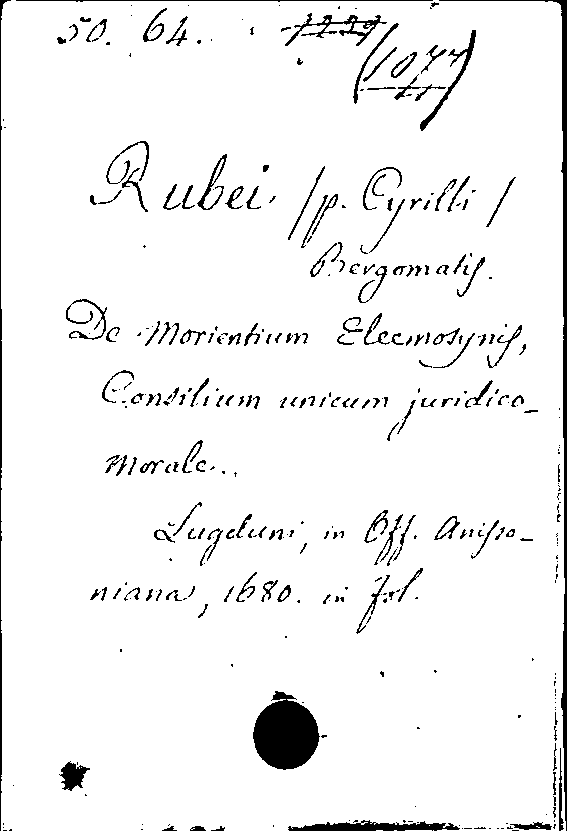 50. 64. 1239
(1077)
Rubei, /p. Cyrilli /
Bergomatis.
De Morientium Eleemosynis,
Consilium unicum juridico-
morale...
Lugduni, in Off. Anisso-
niana, 1680. in fol.